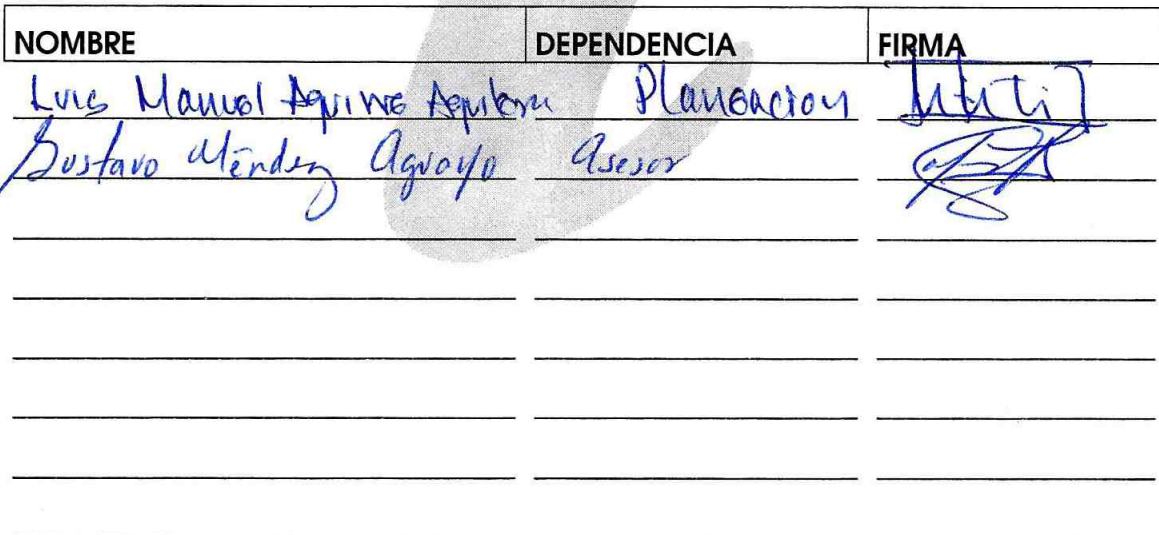 NOMBRE DEPENDENCIA FIRMA
Luis Manuel Aquino Aguilera Planeacion
Gustavo Méndez Aguayo Asesor